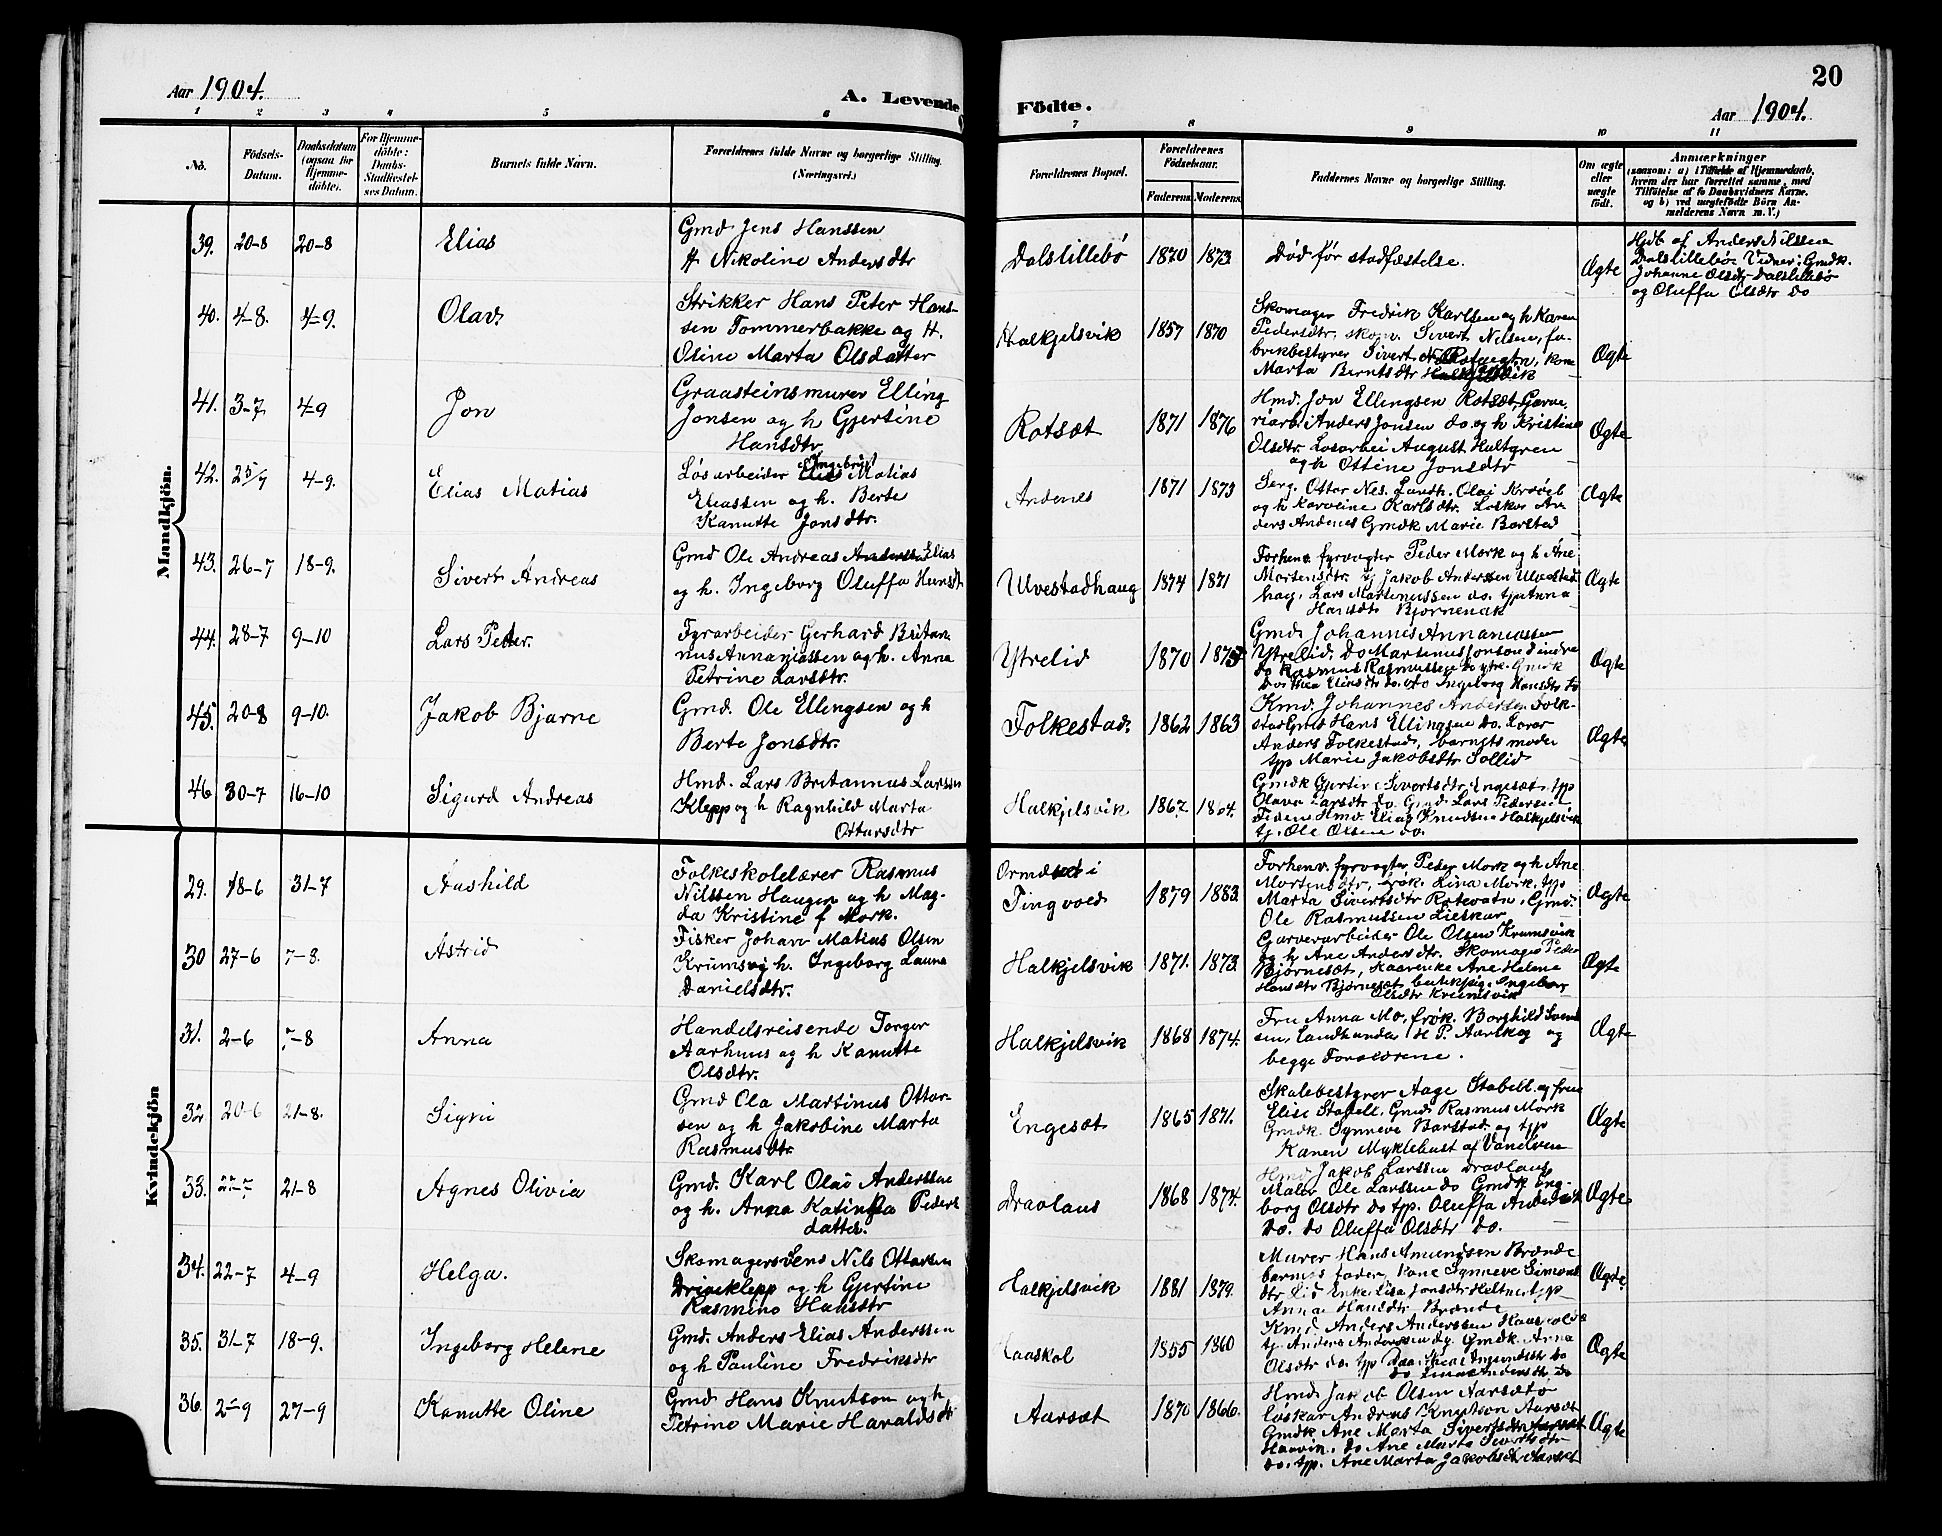 Aar 1904.
A. Levende
Födte.
20
Aar 1904.
1 2 3 4 5 6 7 8 9 10 11
No.
Födsels-
Datum.
Daabsdatum
(ogsaa for
Hjemme-
döbte).
For Hjemme-
döbte:
Daabs-
Stadfæstel-
ses Datum.
Barnets fulde Navn.
Forældrenes fulde Navne og borgerlige Stilling.
(Næringsvei.)
Forældrenes Bopæl.
Forældrenes
Födselsaar.
Faderens Moderens
Faddernes Navne og borgerlige Stilling.
Om ægte
eller
uægte
födt.
Anmærkninger
(saasom: a) i Tilfælde af Hjemmedaab,
hvem der har forrettet samme, med
Tilföielse af to Daabsvidners Navne,
og b) ved uægtefödte Börn An-
melderens Navn m. V.)
Mandkjön.
39. 20-8 20-8
Elias
Gmd Jens Hanssen
H Nikoline Andersdtr
Dalslillebø 1870 1873
Død før stadfæstelse.
Ægte
Hjdb af Anders Nilssen
Dalslillebø Vidner: Gmdk.
Johanne Olsdtr Dalslillebø
og Oluffa Olsdtr do
40. 4-8. 4-9.
Olav.
Strikker Hans Peter Hans-
sen Tommerbakke og H.
Oline Marta Olsdatter
Halkjelsvik 1857 1870
Skomager Fredrik Karlsen og h Karen
Pedersdtr, skom. Sivert Nilsen, fa-
brikbestyrer Sivert kone
Marta Berntsdtr
Ægte
41. 3-7 4-9
Jon
Graasteinsmurer Elling
Jonsen og h Gjertine
Hansdtr
Rotsæt 1871 1876
Hmd. Jon Ellingsen Rotsæt, Garve-
riarb. Anders Jonsen do og h Kristine
Olsdtr Losarbei August Hultgren
og h Ottine Jonsdtr
Ægte
42. 25/7 4-9.
Elias Matias
Løsarbeider Ingebrigt Matias
Eliassen og h. Berte
Kanutte Jonsdtr.
Andenes 1871 1873
Serg. Ottar Nes. Landh. Olai
og h Karoline Karlsdtr. Løskar An-
ders Andenes Gmdk Marie Barstad
Ægte
43. 26-7 18-9.
Sivert Andreas
Gmd Ole Andreas Elias
og h. Ingeborg Oluffa
Ulvestadhaug 1874 1871
Forhenv. fyrvogter Peder Mork og h Ane
Mortensdtr. Jakob Anderssen Ulvestad-
haug, Lars Martinussen do. tjp Anna
Hansdtr Bjørnenak
Ægte
44. 28-7 9-10
Lars Peder.
Fyrarbeider Gerhard Britan-
nus Annaniassen og h. Anna
Petrine Larsdtr.
Ytrelid 1870
Gmd. Johannes Annaniassen
Ytrelid, do Martinus Jonson Indre
do Rasmus Rasmussen do ytre. Gmdk
Dorthea Eliasdtr do. do Ingeborg Hansdtr do
Ægte
45. 20-8 9-10.
Jakob Bjarne
Gmd. Ole Ellingsen og h
Berte Jonsdtr.
Folkestad. 1862 1863
Kmd. Johannes Andersen Folk-
stad Gmd Hans Ellingsen do. Lærer
Anders Folkestad, barnets moder
tjp Marie Jakobsdtr Sollid
Ægte
46 30-7 16-10
Sigurd Andreas
Hmd. Lars Britannus Larssen
Klepp og h Ragnhild Marta
Ottarsdtr
Halkjelsvik 1867. 1864.
Gmdk Gjertine Sivertsdtr Engesæt, tjp
Olava Larsdtr do. Gmd Lars Pedersen
Hmd. Elias Knudsen Halkjelsvik
tj. Ole Olsen do.
Kvindekjön
29. 18-6 31-7
Aashild
Folkeskolelærer Rasmus
Nilssen Haugen og h Mag-
da Kristine f Mork.
i
Tingvold 1879 1883.
Forhenv. fyrvogter Peder Mork og h Ane
Mortensdtr, frøk. Lina Mork, tjp
Marta Sivertsdtr Rotevatn, Gmd.
Ole Rasmussen Lieskar
Ægte
30 27-6 7-8.
Astrid
Fisker Johan Matias Olsen
Krumsvig h. Ingeborg Laura
Danielsdtr.
Halkjelsvik 1871. 1873.
Garverarbeider Ole Olsen Krumsvik
og h Ane Andersdtr. Skomager Peder
Bjørnesæt, Ane Helene
Hansdtr Bjørnesæt butikpige Ingeborg
Olsdtr Krumsvik
Ægte
31. 2-6 7-8
Anna
Handelsreisende Torger
Aarhuus og h Kanutte
Olsdtr.
Halkjelsvik 1868 1874.
Fru Anna Mo, frøk. Borghild Svend-
sen, Landhandler H P. Aarskog og
begge Forældrene.
Ægte
32 20-6 21-8.
Sigri
Gmd Ola Martinus Ottar-
sen og h Jakobine Marta
Rasmusdtr.
Engesæt 1865 1871.
Skolebestyrer Aage Stabell og frue
Elise Stabell. Gmd Rasmus Mork
Gmdk. Synneve Barstad og tjp
Karen Myklebust af Vanelven
Ægte
33. 21-8
Agnes Olivia
Gmd. Karl Olai Anderssen
og h. Anna Katinka Peders
datter.
Dravlaus 1868 1874.
Hmd Jakob Larssen Dravlaus
Maler Ole Larssen do Gmdk Inge-
borg Olsdtr do tjp. Oluffa Andersdtr
do. do Oluffa Olsdtr do.
Ægte
34. 22-7 4-9
Helga.
Skomagersvend Nils Ottarsen
Driveklepp og h Gjertine
Rasmine Hansdtr
Halkjelsvik 1881 1879.
Murer Hans Amundsen Brænde
barnets fader, Kone Synneve Simons-
dtr Lid Enke Lisa Jonsdtr Heltne tjp
Anna Hansdtr Brænde
Ægte
35. 31-7 18-9.
Ingeborg Helene
Gmd. Anders Elias Anderssen
og h Pauline Fredriksdtr
Haaskol 1855 1860
Kmd. Anders Anderssen
tj. Anders Anderssen do. Gmdk. Anna
Olsdtr do. tjp Amundsdtr do
do Andersdtr do
Ægte
36. 2-9 27-9
Kanutte Oline
Gmd Hans Knutson og h
Petrine Marie Haraldsdtr
Aarsæt 1870 1866.
Hmd Jakob Olsen Aarsæt
løskar Andreas Knutson Aarsæt
Gmdk Ane Marta Sivertsdtr
do Ane Marta Sivertsdtr
do. tjp. Ane Marta Jakobsdtr Aarsæt
Ægte